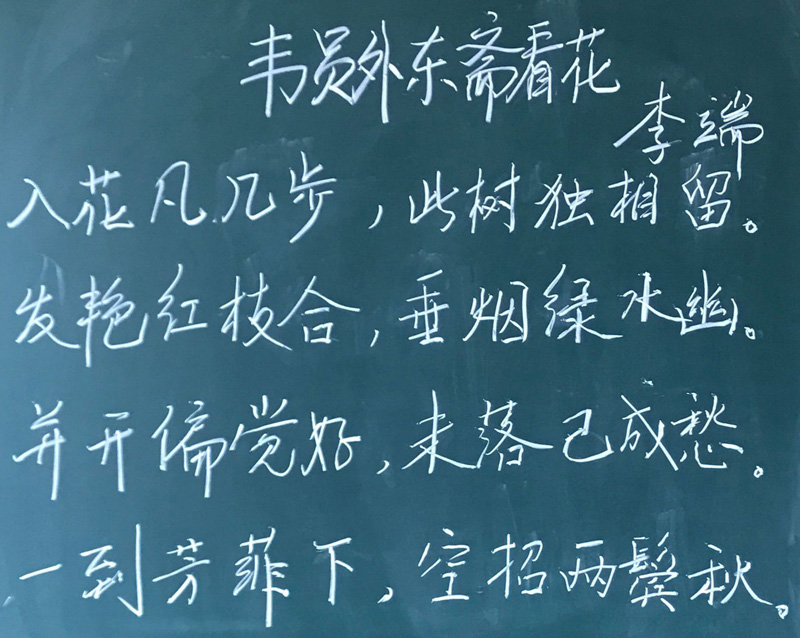 韦员外东斋看花
李端
入花凡几步，此树独相留。
发艳红枝合，垂烟绿水幽。
并开偏觉好，未落已成愁。
一到芳菲下，空招两鬓秋。